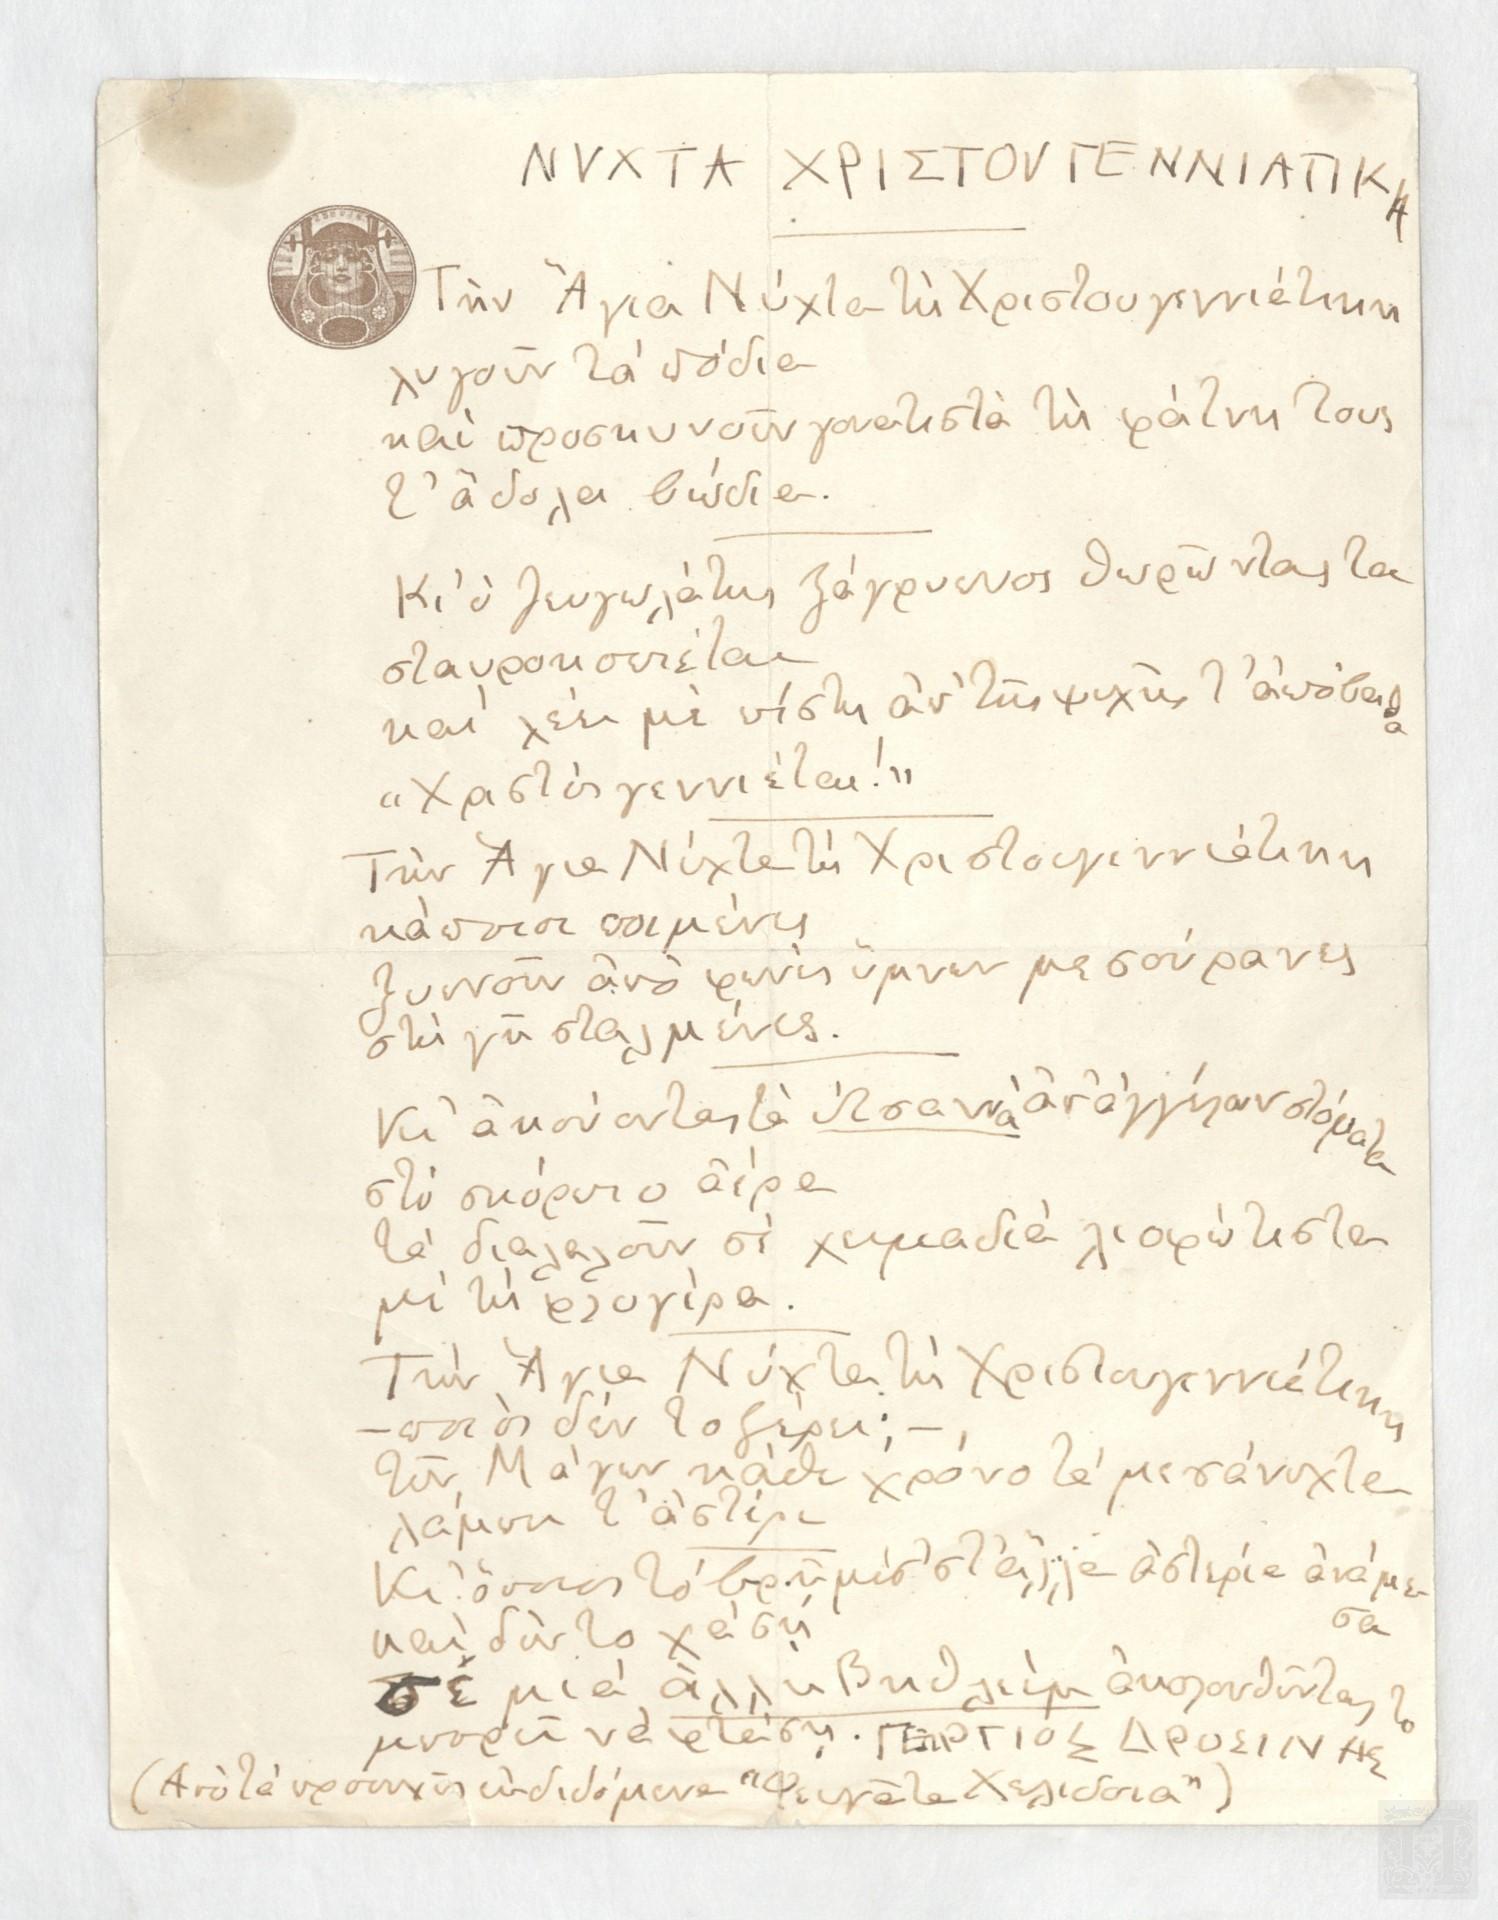 ΝΥΧΤΑ ΧΡΙΣΤΟΥΓΕΝΝΙΑΤΙΚΗ
Τὴν Ἅγια Νύχτα τὴ Χριστουγεννιάτικη
λυγοῦν τὰ πόδια
καὶ προσκυνοῦν γονατιστὰ τὴ φάτνη τους
τ' ἄδολα βώδια.
Κι' ὁ ζευγωλάτης ξάγρυπνος θωρῶντας τα
σταυροκοπιέται
καὶ λέει μὲ πίστη ἀπ' τῆς ψυχῆς τ' ἀπόβαθα
«Χριστὸς γεννιέται!»
Τὴν Ἅγια Νύχτα τὴ Χριστουγεννιάτικη
κάποιοι ποιμένες
ξυπνοῦν ἀπὸ φωνὲς ὕμνων μεσούρανες
στὴ γῆ σταλμένες.
Κι' ἀκούοντας τὰ ὡσαννὰ ἀπ' ἀγγέλων στόματα
στὸ σκόρπιο ἀέρα
τὰ διαλαλοῦν σὲ χειμαδιὰ λιοφώτιστα
μὲ τὴ φλογέρα.
Τὴν Ἅγια Νύχτα τὴ Χριστουγεννιάτικη
– ποιὸς δὲν τὸ ξέρει; –
τῶν Μάγων κάθε χρόνο τὰ μεσάνυχτα
λάμπει τ' ἀστέρι
Κι' ὅποιος τὸ βρῇ μὲσ' στ' ἄλλα ἀστέρια ἀνάμεσα
καὶ δὲν τὸ χάσῃ
σὲ μιὰ ἄλλη Βηθλεὲμ ἀκολουθῶντας το
μπορεῖ νὰ φτάσῃ. ΓΕΩΡΓΙΟΣ ΔΡΟΣΙΝΗΣ
(Ἀπὸ τὰ προσεχῶς ἐκδιδόμενα "Φευγᾶτα Χελιδόνια")